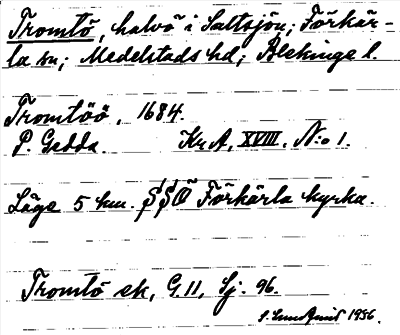 Tromtö, halvö i Saltsjön; Förkär-
la sn; Medelstads hd; Blekinge l.
Tromtöö, 1684.
P. Gedda. Kr A, XVIII, N:o 1.
Läge 5 km. SSÖ Förkärla kyrka.
Tromtö ek, G. 11, Sj. 96.
S. Lundqvist 1936.